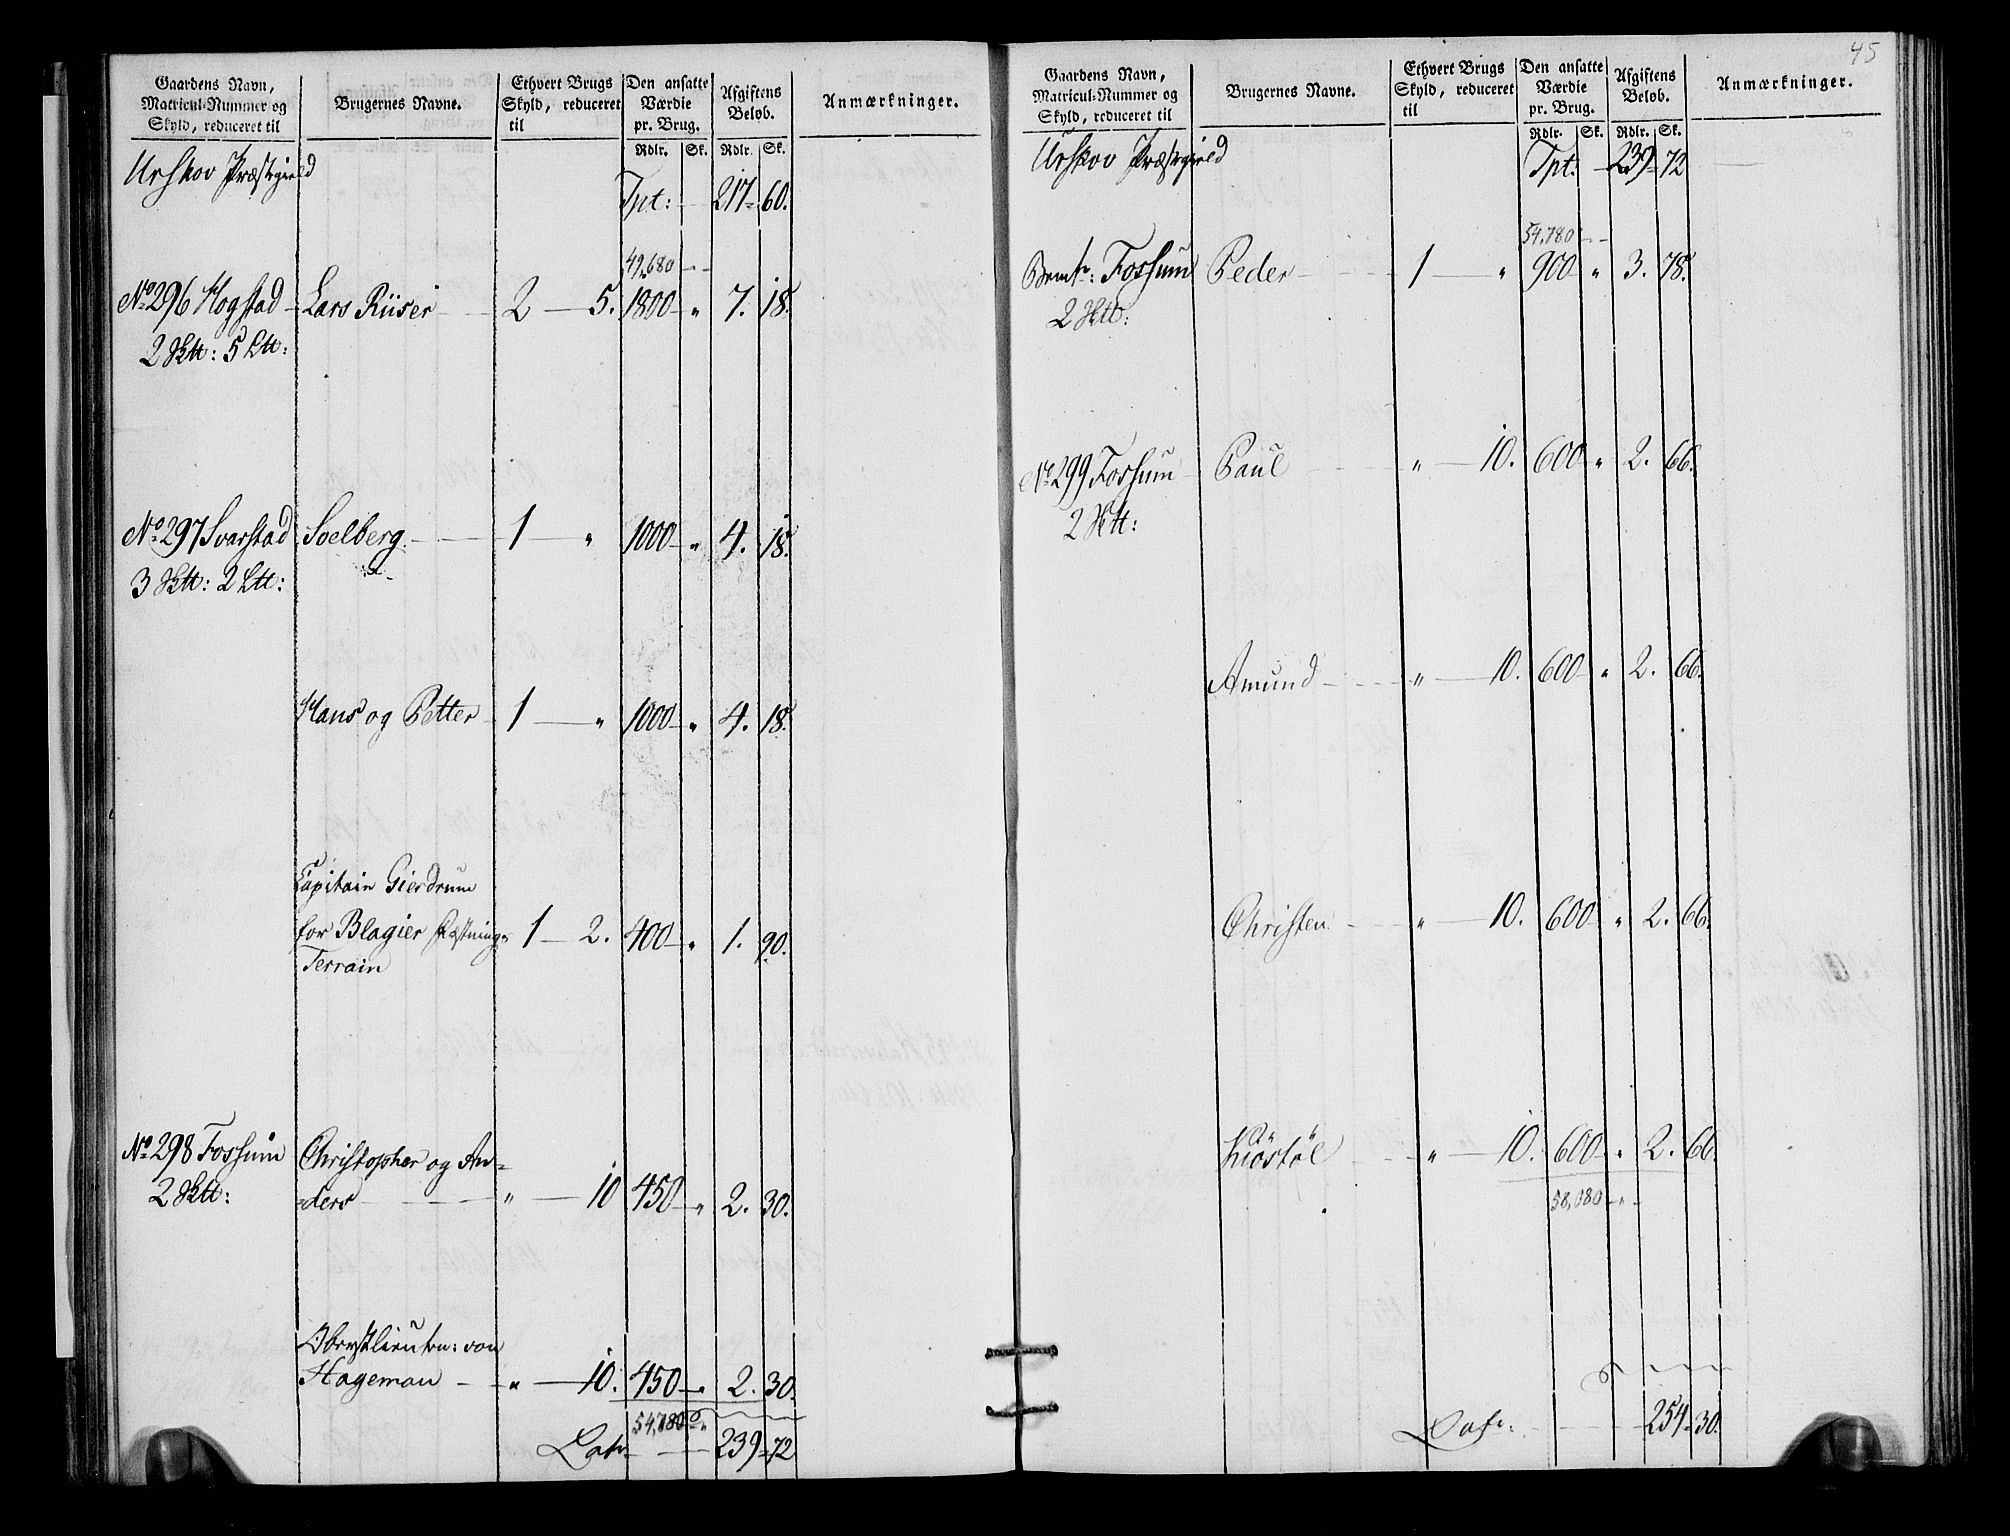 Gaardens Navn, Matricul-Nummer og Skyld, reduceret til
Brugernes Navne.
Ethvert Brugs Skyld, reduceret til
Den ansatte Værdie pr. Brug.
Afgiftens Beløb.
Anmærkninger.
Rdlr. Sk. Rdlr. Sk.
Urskov Præstegield
Tpt: 217 - 60.
49,680
No 296 Hogstad Lars Riiser 2 - 5. 1800 " 7. 18.
2 Sktt: 5 Ltt:
No 297 Svarstad Soelberg 1 " 1000 " 4. 18.
3 Sktt: 2 Ltt:
Hans og Petter 1 " 1000 " 4. 18.
Capitain Gierdrum
for Blagier Fæstning- 1 - 2. 400 " 1. 90.
Terrain
No 298 Fossum Christopher og An-
2 Sktt: -ders " 10 450 " 2. 30.
Obrystlieutn: von
Hageman " 10. 450 " 2. 30.
54,780
Latr 239 - 72
45
Gaardens Navn, Matricul-Nummer og Skyld, reduceret til
Brugernes Navne.
Ethvert Brugs Skyld, reduceret til
Den ansatte Værdie pr. Brug.
Afgiftens Beløb.
Anmærkninger.
Rdlr. Sk. Rdlr. Sk.
Urskov Præstegield
Tpt: 239 - 72
54,780
Fossum Peder 1 " 900 " 3. 78.
2 Sktt:
No 299 Fossum Paul " 10. 600 " 2. 66.
2 Sktt:
Amund " 10. 600 " 2. 66.
Christen " 10. 600 " 2. 66.
Kiøstøl " 10. 600 " 2. 66.
58,080 "
Latr: 254 - 30.